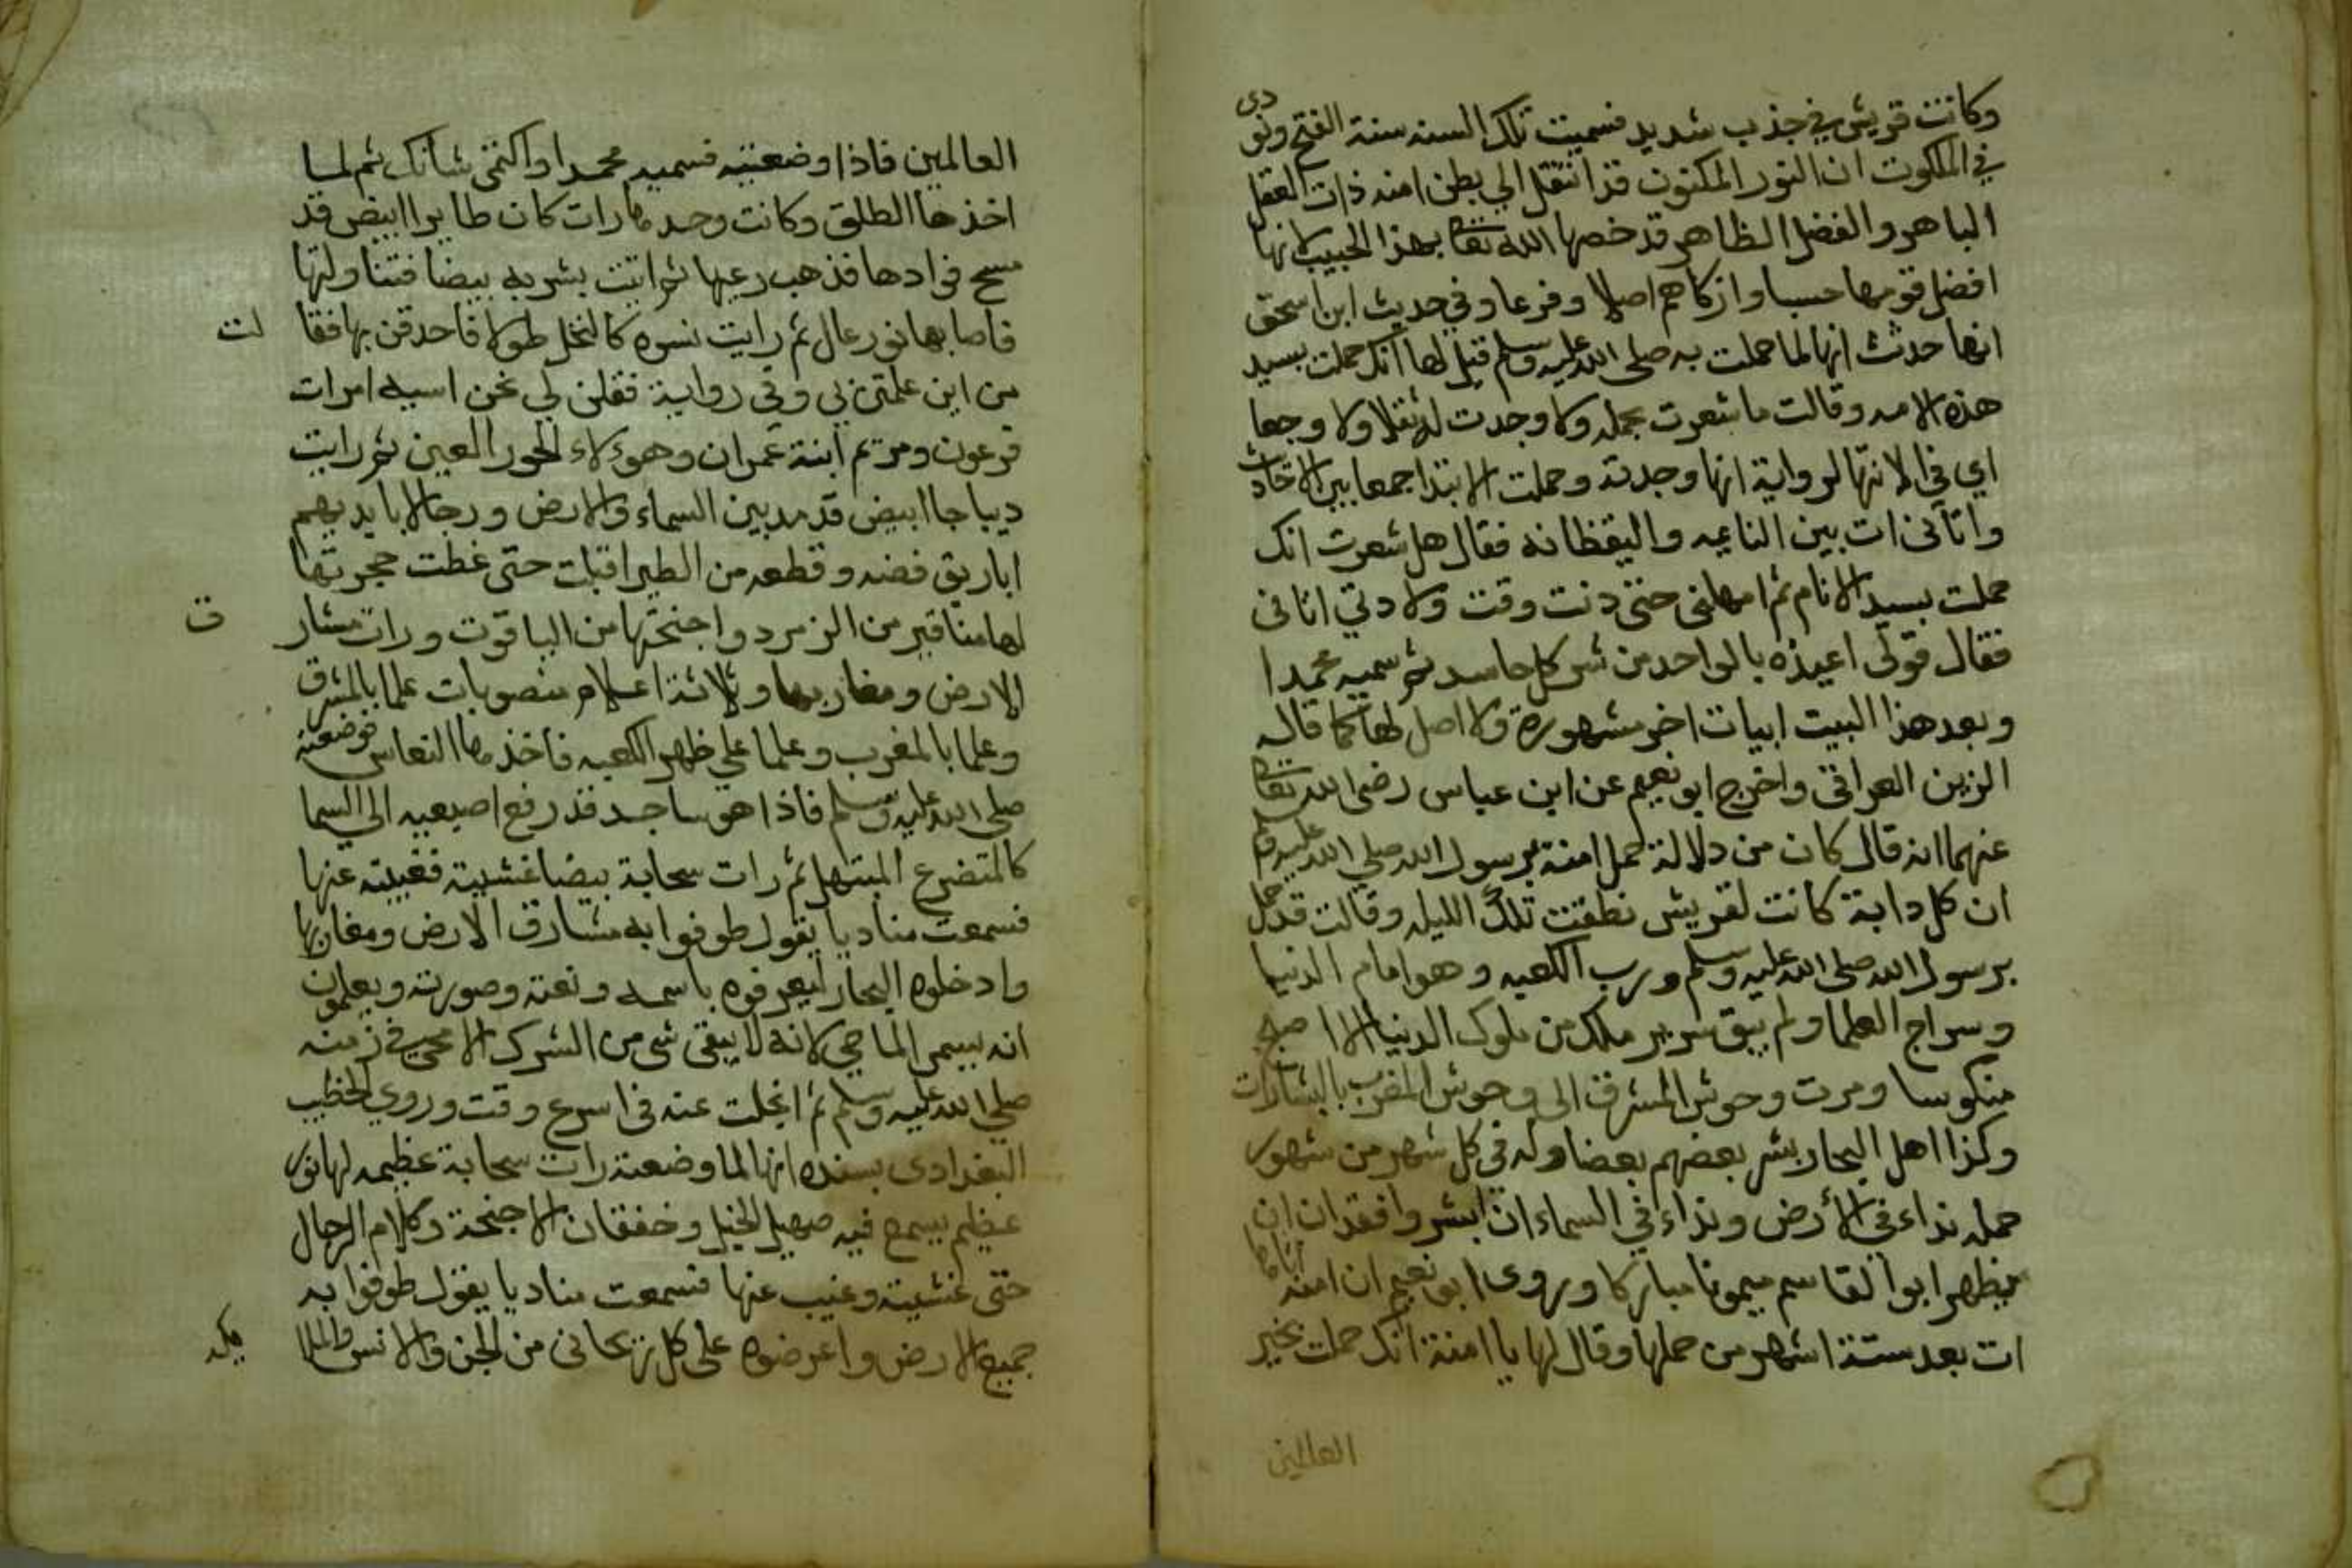 وكانت قريش في جذب شديد فسميت تلك السنه سنة الفتح ونودى
في الملكوت ان النور المكنون قد انتقل الي بطن امنه ذات العقل
الباهر والفضل الظاهر قد خصها الله تعالى بهذا الحبيب لانها
افضل قومها حسبا وازكاهم اصلا وفرعا وفي حديث ابن اسحق
انها حدثت انها لما حملت به صلى الله عليه وسلم قيل لها انك حملت بسيد
هذه الامه وقالت ما شعرت بحمله ولا وجدت له ثقلا ولا وجعا
اي في الانتها لرواية انها وجدته وحملت الابتدا جمعا بين الاحاديث
واتانى ات بين النايمه واليقظانه فقال هل شعرت انك
حملت بسيد الانام ثم امهلنى حتى دنت وقت ولادتي اتانى
فقال قولى اعيذه بالواحد من شر كل حاسد ثم سميه محمدا
وبعد هذا البيت ابيات اخر مشهورة ولا اصل لها كما قاله
الزين العراقى واخرج ابو نعيم عن ابن عباس رضى الله تعالى
عنهما انه قال كان من دلالة حمل امنة برسول الله صلى الله عليه وسلم
ان كل دابة كانت لقريش نطقت تلك الليله وقالت قد حمل
برسول الله صلى الله عليه وسلم ورب الكعبه وهو امام الدنيا
وسراج العلما ولم يبق سرير ملك من ملوك الدنيا الا اصبح
منكوسا ومرت وحوش المشرق الى وحوش المغرب بالبشارات
وكذا اهل البحار بشر بعضهم بعضا وله في كل شهر من شهور
حمله نداء في الأرض ونداء في السماء ان ابشروا فقد ان ان
يظهر ابو القاسم ميمونا مباركا وروى ابو نعيم ان امنه اتاها
ات بعد ستة اشهر من حملها وقال لها يا امنة انك حملت بخير
العالمين
العالمين فاذا وضعتيه فسميه محمدا واكتمى شانك ثم لما
اخذها الطلق وكانت وحدها رات كان طايرا ابيض قد
مسح فوادها فذهب رعبها ثم اتيت بشربه بيضا فتناولتها
فاصابها نور عال ثم رايت نسوه كالنخل طولا فاحدقن بها فقالت
من اين علمتن بي وفي رواية فقلن لي نحن اسيه امرات
فرعون ومريم ابنة عمران وهؤلاء الحور العين ثم رايت
ديباجا ابيض قد مد بين السماء والارض ورجالا بايديهم
اباريق فضه وقطعه من الطير اقبلت حتى غطت حجرتها
لها مناقير من الزمرد واجنحتها من الياقوت ورات مشارق
الارض ومغاربها وثلاثة اعلام منصوبات علما بالمشرق
وعلما بالمغرب وعلما علي ظهر الكعبه فاخذها النعاس فوضعته
صلى الله عليه وسلم فاذا هو ساجد قد رفع اصبعيه الي السما
كالمتضرع المبتهل ثم رات سحابة بيضا غشيته فغيبته عنها
فسمعت مناديا يقول طوفوا به مشارق الارض ومغاربها
وادخلوه البحار ليعرفوه باسمه ونعته وصورته ويعلمون
انه يسمى الماحي لانه لا يبقى شى من الشرك الا محي في زمنه
صلي الله عليه وسلم ثم انجلت عنه في اسرع وقت وروي الخطيب
البغدادى بسنده انها لما وضعته رات سحابة عظيمه لها نور
عظيم يسمع فيه صهيل الخيل وخفقان الاجنحة وكلام الرجال
حتى غشيته وغيب عنها فسمعت مناديا يقول طوفوا به
جميع الارض واعرضوه على كل روحانى من الجن والانس والملايكه